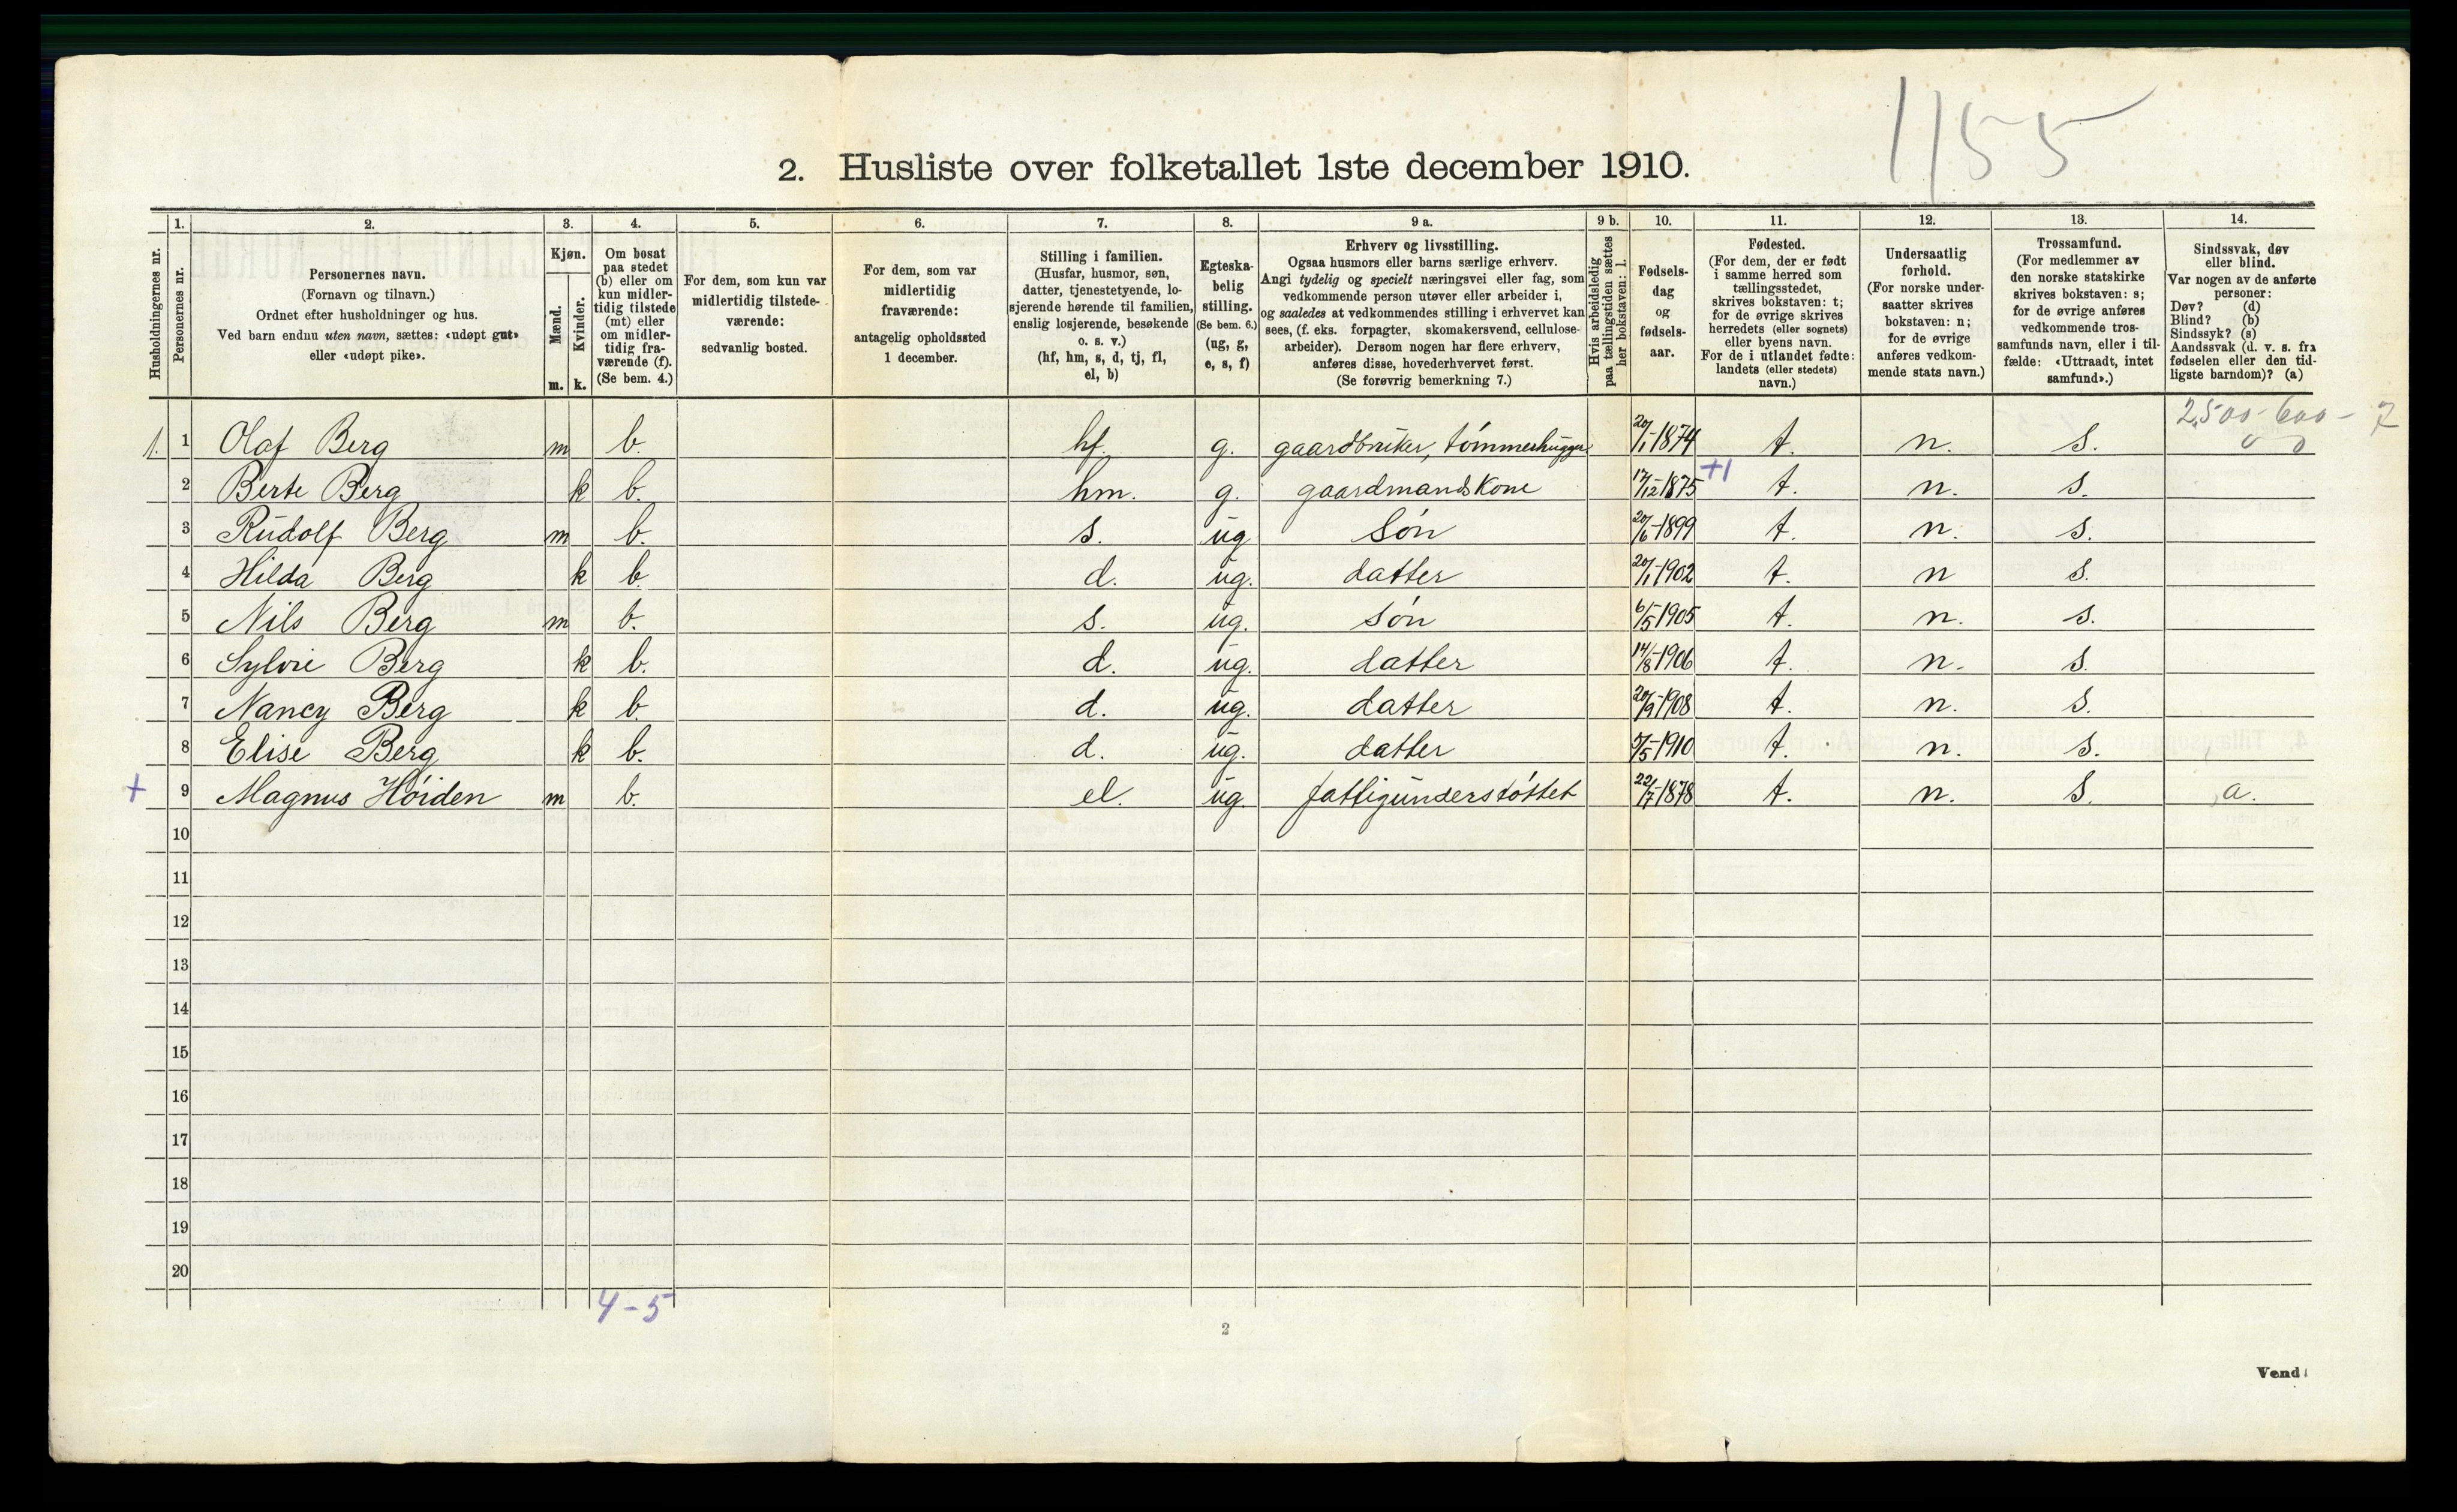 1155
2. Husliste over folketallet 1ste december 1910.
Husholdningernes nr.
1. Personernes nr.
2. Personernes navn.
(Fornavn og tilnavn.)
Ordnet efter husholdninger og hus.
Ved barn endnu uten navn, sættes: «udøpt gut»
eller «udøpt pike».
3. Kjøn.
Mænd. m.
Kvinder. k.
4. Om bosat
paa stedet
(b) eller om
kun midler-
tidig tilstede
(mt) eller
om midler-
tidig fra-
værende (f).
(Se bem. 4.)
5. For dem, som kun var
midlertidig tilstede-
værende:
sedvanlig bosted.
6. For dem, som var
midlertidig
fraværende:
antagelig opholdssted
1 december.
7. Stilling i familien.
(Husfar, husmor, søn,
datter, tjenestetyende, lo-
sjerende hørende til familien,
enslig losjerende, besøkende
o. s. v.)
(hf, hm, s, d, tj, fl,
el, b)
8. Egteska-
belig
stilling.
(Se bem. 6.)
(ug, g,
e, s, f)
9 a. Erhverv og livsstilling.
Ogsaa husmors eller barns særlige erhverv.
Angi tydelig og specielt næringsvei eller fag, som
vedkommende person utøver eller arbeider i,
og saaledes at vedkommendes stilling i erhvervet kan
sees, (f. eks. forpagter, skomakersvend, cellulose-
arbeider). Dersom nogen har flere erhverv,
anføres disse, hovederhvervet først.
(Se forøvrig bemerkning 7.)
9 b. Hvis arbeidsledig
paa tællingstiden sættes
her bokstaven: l.
10. Fødsels-
dag
og
fødsels-
aar.
11. Fødested.
(For dem, der er født
i samme herred som
tællingsstedet,
skrives bokstaven: t;
for de øvrige skrives
herredets (eller sognets)
eller byens navn.
For de i utlandet fødte:
landets (eller stedets)
navn.)
12. Undersaatlig
forhold.
(For norske under-
saatter skrives
bokstaven: n;
for de øvrige
anføres vedkom-
mende stats navn.)
13. Trossamfund.
(For medlemmer av
den norske statskirke
skrives bokstaven: s;
for de øvrige anføres
vedkommende tros-
samfunds navn, eller i til-
fælde: «Uttraadt, intet
samfund».)
14. Sindssvak, døv
eller blind.
Var nogen av de anførte
personer:
Døv? (d)
Blind? (b)
Sindssyk? (s)
Aandssvak (d. v. s. fra
fødselen eller den tid-
ligste barndom)? (a)
2,500 - 600 - 7
0 0
1. 1 Olaf Berg m b. hf. g. gaardbruker, tømmerhugger 20/1-1874 t. n. s.
+1
2 Berte Berg k b. hm. g. gaardmandskone 17/12-1875 t. n. s.
3 Rudolf Berg m b. s. ug søn 20/6-1899 t. n. s.
4 Hilda Berg k b. d. ug. datter 20/1-1902 t. n s.
5 Nils Berg m b. s. ug. søn 6/5-1905 t. n. s.
6 Sylvie Berg k b. d. ug. datter 14/8-1906 t. n. s.
7 Nancy Berg k b. d. ug. datter 20/9-1908 t. n. s.
8 Elise Berg k b. d. ug. datter 5/5-1910 t. n. s.
+ 9 Magnus Høiden m b. el. ug. fattigunderstøttet 22/7-1878 t. n. s. a.
10
11
12
13
14
15
16
17
18
19
20
4-5
2
Vend!